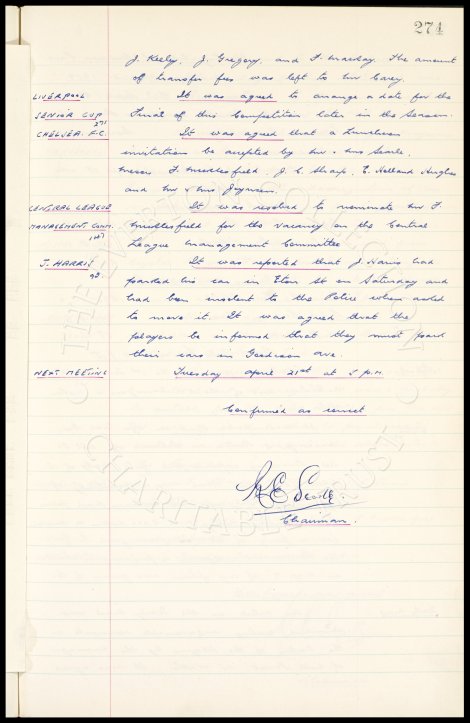 274
J. Keeley, J. Gregory, and F. Mackay. The amount
of transfer fees was left to Mr Carey.
LIVERPOOL It was agreed to arrange a date for the
SENIOR CUP Final of this Competition later in the Season.
271
CHELSEA. F.C. It was agreed that a Luncheon
invitation be accepted by Mr & Mrs Searle,
Messrs F. Micklesfield, J. C. Sharp, E. Holland Hughes
and Mr & Mrs
CENTRAL LEAGUE It was resolved to nominate Mr F.
MANAGEMENT COMM. Micklesfield for the vacancy on the Central
147 League Management Committee
J. HARRIS It was reported that J. Harris had
98 parked his car in Eton St on Saturday and
had been insolent to the Police when asked
to move it. It was agreed that the
players be informed that they must park
their cars in Goodison Ave.
NEXT MEETING Tuesday April 21st at 5 p.m.
Confirmed as correct
R E Searle.
Chairman.
THE EVERTON COLLECTION
CHARITABLE TRUST